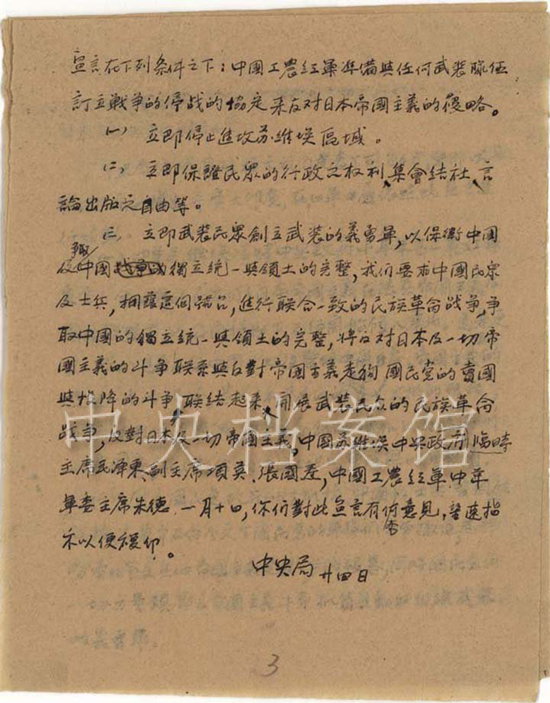 宣言在下列条件之下：中國工农红軍准備與任何武裝隊伍
訂立戰争的停战的协定来反对日本帝國主義的侵略。
㈠ 立即停止進攻苏維埃區域。
㈡ 立即保證民眾的行政之权利集會结社言
論出版之自由等。
㈢ 立即武裝民眾創立武装的義勇軍，以保衛中國
及中國獨立統一與領土的完整，我们要求中國民众
及士兵，拥護這個號召，進行联合一致的民族革命战争，争
取中國的獨立統一與領土的完整，將反对日本及一切帝
國主義的斗争联系與反對帝國主義走狗國民党的賣國
與投降的斗争联结起来，開展武装民众的民族革命
战争，反對日本及一切帝國主義，中國苏維埃中央政府临時
主席毛泽東，副主席項英、張國燾，中國工農红軍中革
軍委主席朱德 一月十日，你们對此宣言有何意見，望速指
示以便復印。
中央局 廿四日
3
中央档案馆